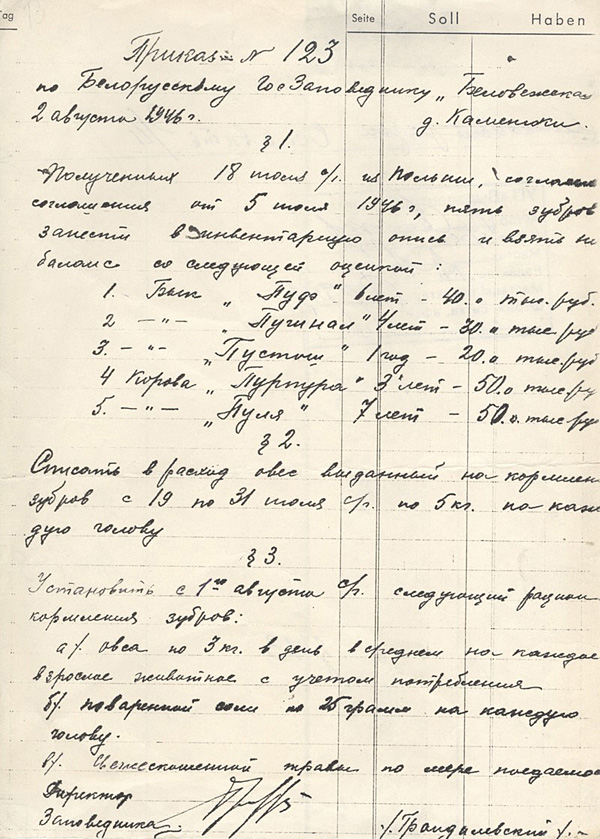 Tag Seite Soll Haben
Приказ № 123
по Белорусскому ГосЗаповеднику „Беловежская
2 августа 1946 г. д. Каменюки.
§ 1.
Полученных 18 июля с/г. из Польши, согласно
соглашения от 5 июля 1946 г, пять зубров
занести в инвентарную опись и взять на
баланс со следующей оценкой:
1. Бык „Пуф" 6 лет – 40.0 тыс. руб.
2 —"— „Пугинал" 4 лет – 30.0 тыс руб
3. —"— „Пустош" 1 год – 20.0 тыс руб
4 Корова „Пурпура" 3 лет – 50.0 тыс ру
5. —"— „Пуля" 7 лет – 50.0. тыс ру
§ 2.
Списать в расход овес выданный на кормлен
зубров с 19 по 31 июля с/г. по 5 кг. на каж
дую голову
§ 3.
Установить с 1го августа с/г. следующий рацион
кормления зубров:
а/. овса по 3 кг. в день в среднем на каждое
взрослое животное с учетом потребления
б/. поваренной соли по 25 грамм на каждую
голову.
в/. Свежескошенной травы по мере поедаемо
Директор
Заповедника /.